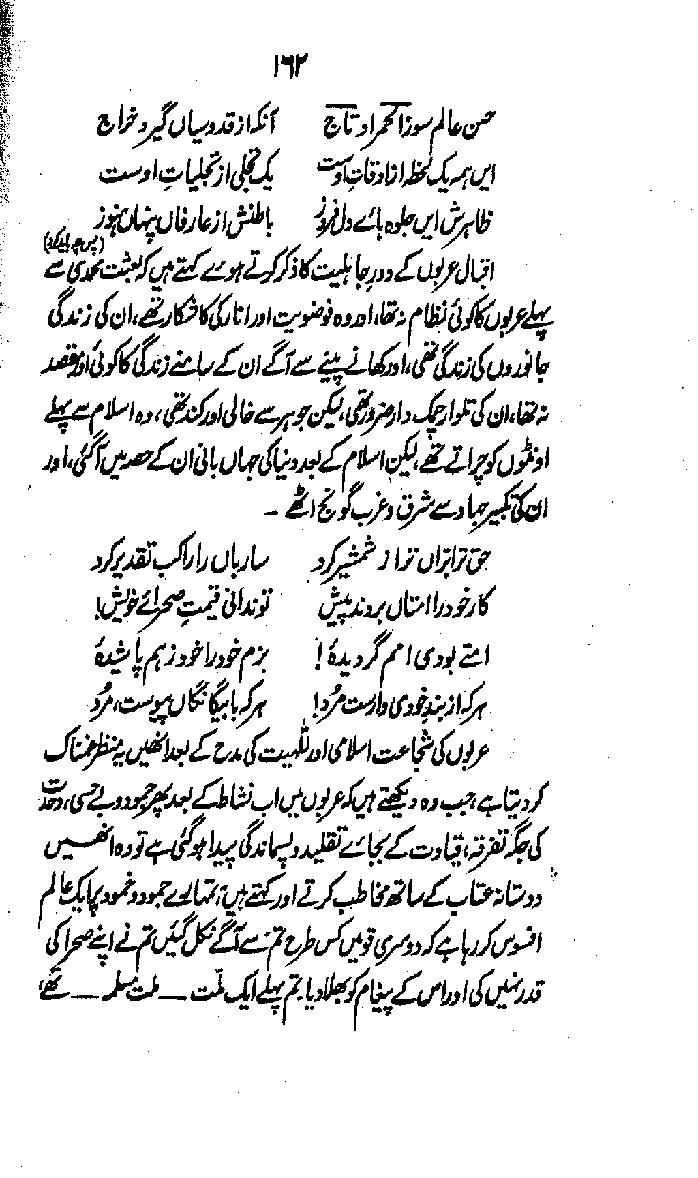 ۱۶۲
حسن عالم سوز الحمرا و تاج آنکہ از قدوسیاں گیرد خراج
ایں ہمہ یک لحظہ از اوقات اوست یک تجلی از تجلیات اوست
ظاہرش ایں جلوہ ہائے دل فروز باطنش از عارفاں پنہاں ہنوز
(پس چہ باید کرد)
اقبال عربوں کے دور جاہلیت کا ذکر کرتے ہوئے کہتے ہیں کہ بعثت محمدی سے
پہلے عربوں کا کوئی نظام نہ تھا، اور وہ فوضویت اور انارکی کا شکار تھے، ان کی زندگی
جانوروں کی زندگی تھی، اور کھانے پینے سے آگے ان کے سامنے زندگی کا کوئی اور مقصد
نہ تھا، ان کی تلوار چمک دار ضرور تھی، لیکن جوہر سے خالی اور کند تھی، وہ اسلام سے پہلے
اونٹوں کو چراتے تھے، لیکن اسلام کے بعد دنیا کی جہاں بانی ان کے حصہ میں آگئی، اور
ان کی تکبیر جہاد سے شرق و غرب گونج اٹھے ۔
حق ترا براں تر از شمشیر کرد سارباں را راکب تقدیر کرد
کار خود را امتاں بردند پیش تو ندانی قیمت صحرائے خویش!
امتے بودی امم گردیدۂ! بزم خود را خود زہم پاشیدۂ
ہر کہ از بند خودی وارست مُرد! ہر کہ با بیگانگاں پیوست، مُرد
عربوں کی شجاعت اسلامی اور للہیت کی مدح کے بعد انھیں یہ منظر غمناک
کر دیتا ہے، جب وہ دیکھتے ہیں کہ عربوں میں اب نشاط کے بعد پھر جمود و بے حسی، وحدت
کی جگہ تفرقہ، قیادت کے بجائے تقلید و پسماندگی پیدا ہو گئی ہے تو وہ انھیں
دوستانہ عتاب کے ساتھ مخاطب کرتے اور کہتے ہیں، تمہارے جمود و خمود پر ایک عالم
افسوس کر رہا ہے کہ دوسری قومیں کس طرح تم سے آگے نکل گئیں تم نے اپنے صحرا کی
قدر نہیں کی اور اس کے پیغام کو بھلا دیا، تم پہلے ایک ملّت — ملت مسلمہ — تھے،